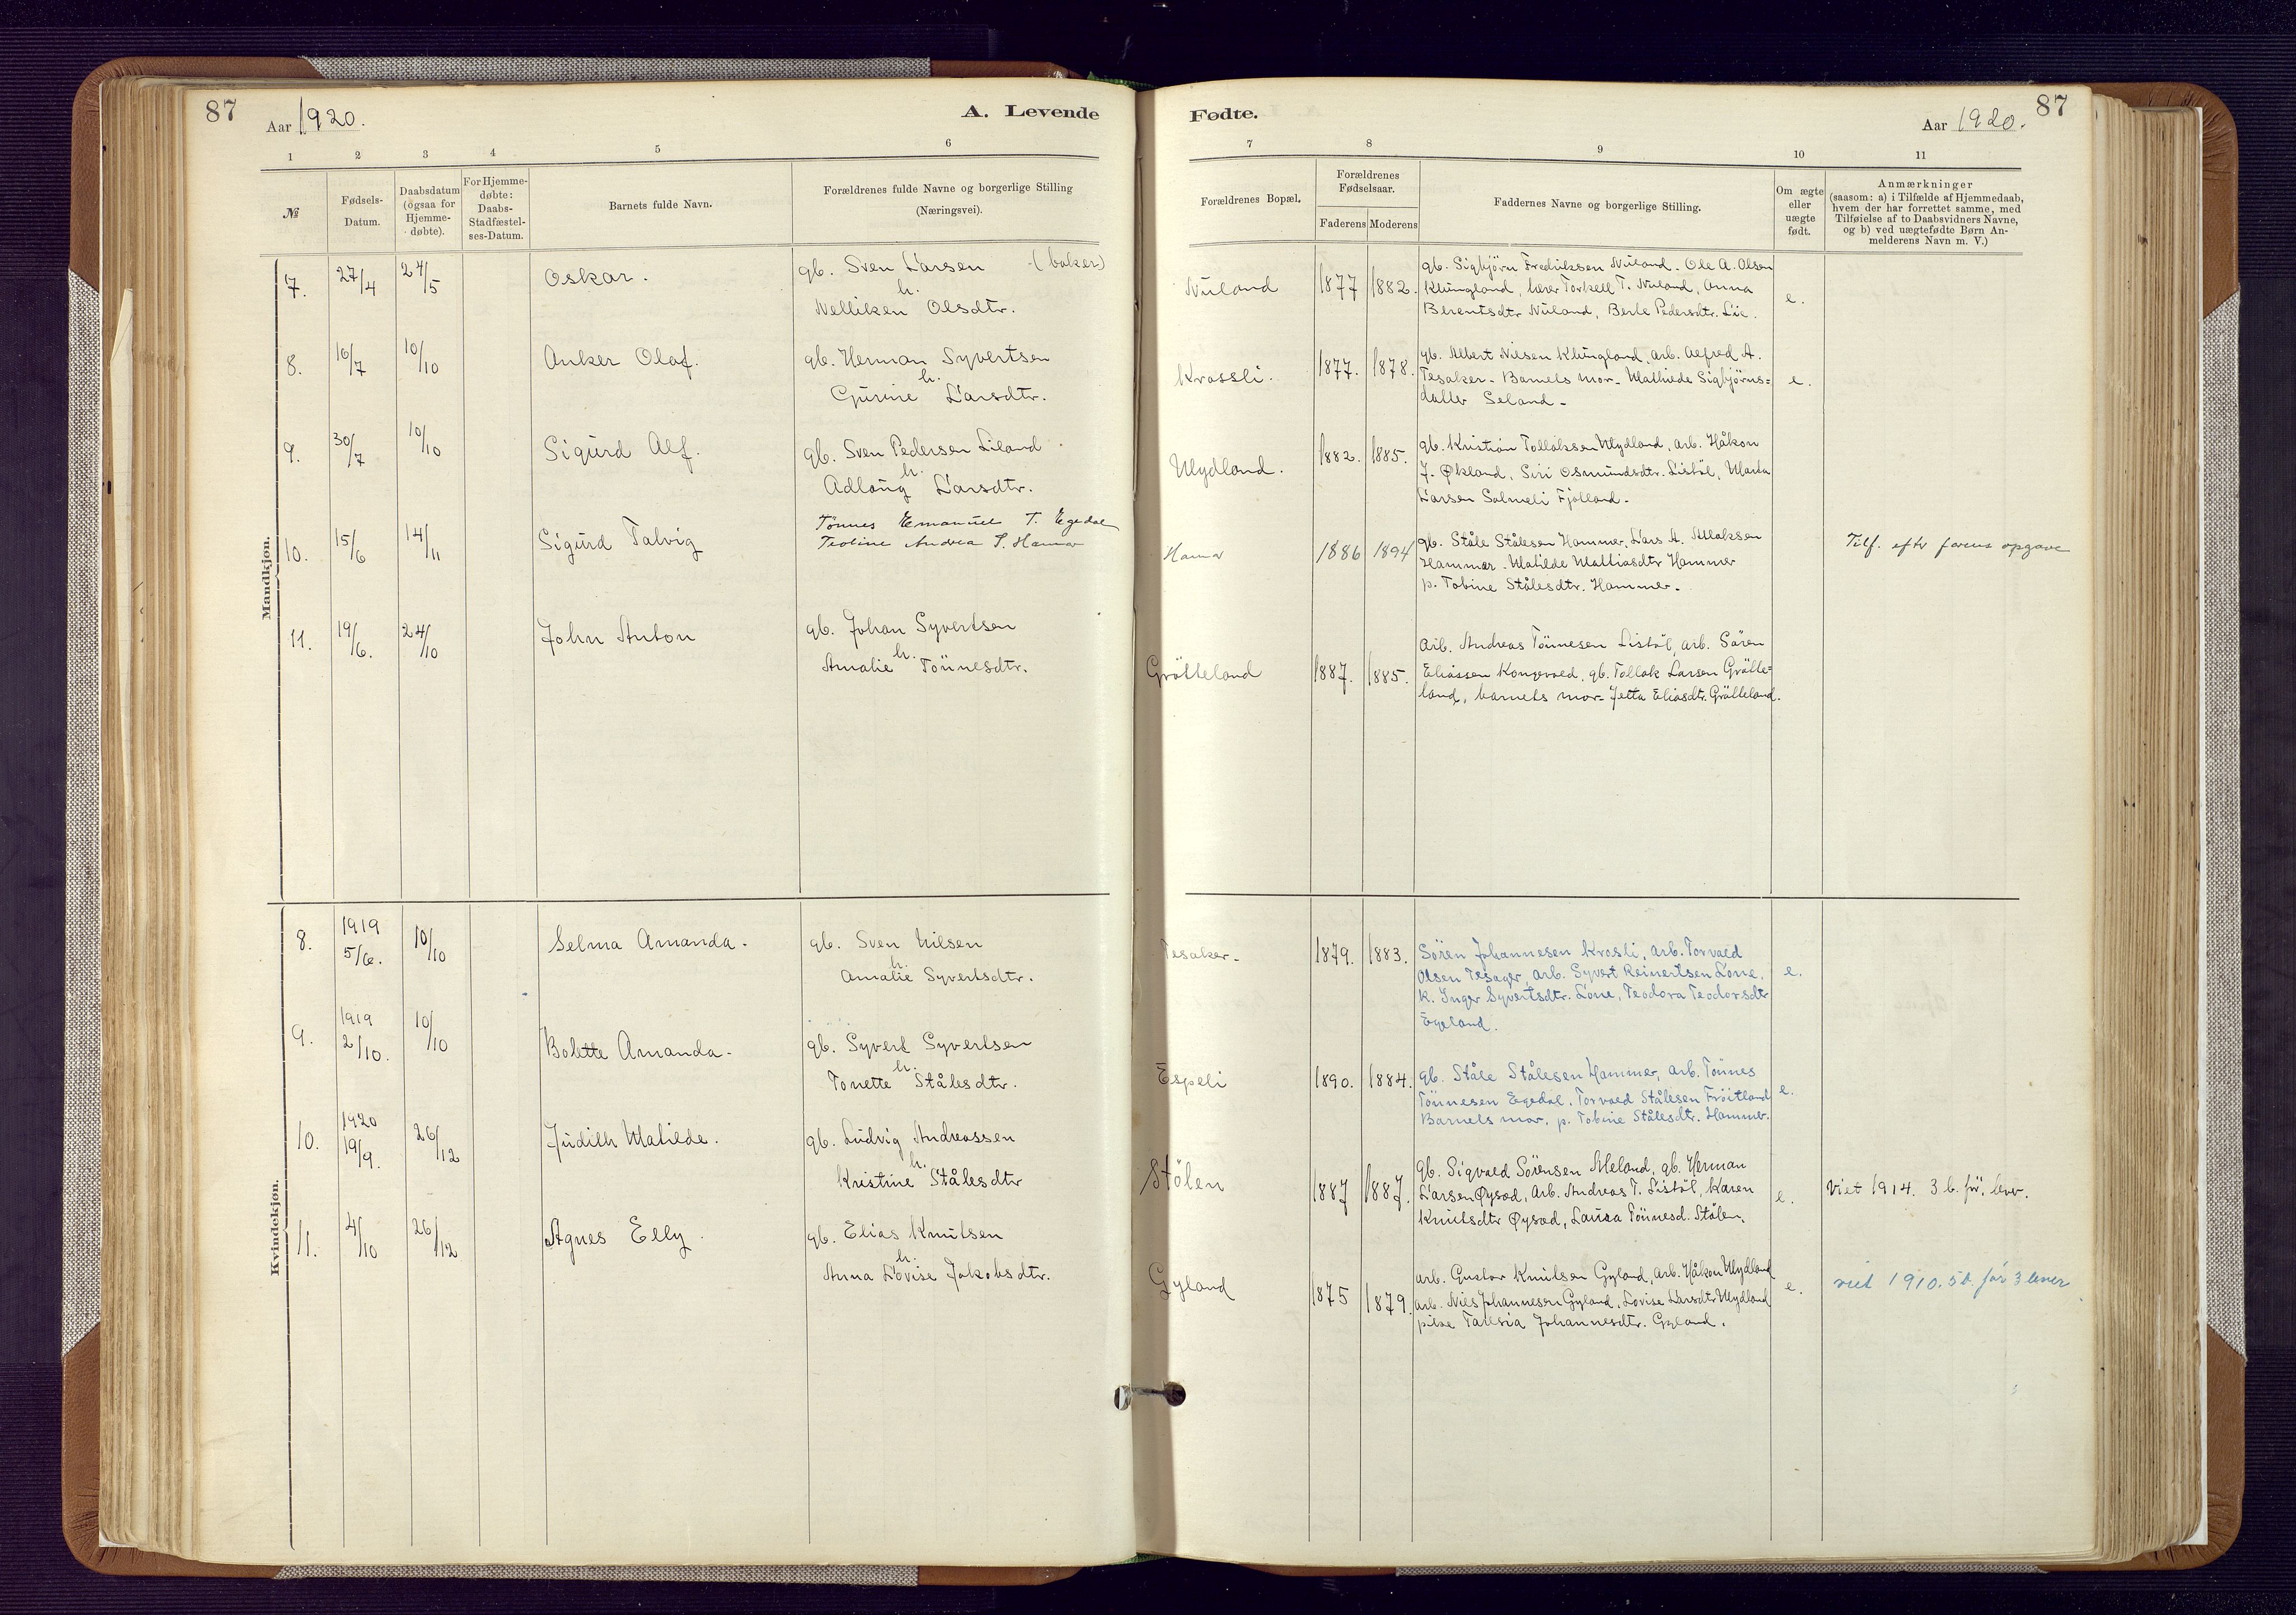 87
Aar 1920.
A. Levende
Fødte.
Aar 1920.
87
1 2 3 4 5 6
7 8 9 10 11
№
Fødsels-
Datum.
Daabsdatum
(ogsaa for
Hjemme-
døbte).
For Hjemme-
døbte:
Daabs-
Stadfæstel-
ses-Datum.
Barnets fulde Navn.
Forældrenes fulde Navne og borgerlige Stilling
(Næringsvei).
Forældrenes Bopæl.
Forældrenes
Fødselsaar.
Faderens Moderens
Faddernes Navne og borgerlige Stilling.
Om ægte
eller
uægte
født.
Anmærkninger
(saasom: a) i Tilfælde af Hjemmedaab,
hvem der har forrettet samme, med
Tilføielse af to Daabsvidners Navne,
og b) ved uægtefødte Børn An-
melderens Navn m. V.)
Mandkjøn.
7. 27/4 24/5 Oskar. gb. Sven Larsen (baker)
h.
Nelliken Olsdtr.
Nuland 1877 1882.
gb. Sigbjørn Fredriksen Nuland. Ole A. Olsen
Klungland, lærer Torkell T. Nuland, Anna
Berentsdtr Nuland, Berte Pedersdtr. Lie.
e.
8. 16/7 10/10 Anker Olaf. gb. Herman Syvertsen
h.
Gurine Larsdtr.
Krossli. 1877. 1878.
gb. Albert Nilsen Klungland, arb. Alfred A.
Tesaker - Barnets mor - Mathilde Sigbjørns=
datter Seland -
e.
9. 30/7 10/10 Sigurd Alf. gb. Sven Pedersen Liland
h.
Adlaug Larsdtr.
Mydland. 1882. 1885.
gb. Kristian Tollaksen Mydland, arb. Håkon
J. Økland, Siri Osmundsdtr. Listöl, Marta
Larsen Solmeli Fjotland -
10. 15/6 14/11 Sigurd Talvig
Tönnes Emanuel T. Egedal
Teoline Andrea S. Hamar
Hamar 1886 1894
gb. Ståle Stålesen Hammer, Lars A. Atlaksen
Hammer - Matilde Mathiasdtr Hammer
p. Tobine Stålesdtr. Hammer.
Tilf. eftr farens opgave
11. 19/6. 24/10 John Anton gb. Johan Syvertsen
h.
Amalie Tönnesdtr.
Grötteland 1887. 1885.
Arb. Andreas Tönnesen Listöl, arb. Sören
Eliassen Kongevold, gb. Tollak Larsen Grötte=
land, barnets mor - Jetta Eliasdtr. Grötteland.
Kvindekjøn.
8. 1919
5/6. 10/10 Selma Amanda. gb. Sven Nilsen
h.
Amalie Syvertsdtr.
Tesaker - 1879. 1883.
Sören Johannesen Krosli, arb. Torvald
Olsen Tesager, arb. Syvert Reinertsen Lone,
k. Inger Syvertsdtr. Lone, Teodora Teodorsdtr
Egeland.
e.
9. 1919
2/10. 10/10 Bolette Amanda - gb. Syvert Syvertsen
h.
Tonette Stålesdtr.
Espeli 1890. 1884.
gb. Ståle Stålesen Hammer, arb. Tönnes
Tönnesen Egedal, Torvald Stålesen Fröitland
Barnets mor, p. Tobine Stålesdtr. Hammer.
e.
10. 1920
19/9. 26/12 Judith Matilde. gb. Ludvig Andreassen
h.
Kristine Stålesdtr
Stölen 1887 1887.
gb. Sigvald Sörensen Meland, gb. Herman
Larsen Øysæd, Arb. Andreas T. Listöl, Karen
Knutsdtr Øysæd, Laura Tönnesd. Stölen.
e.
Viet 1914. 3 b. för, lever.
11. 4/10 26/12 Agnes Elly. gb. Elias Knutsen
h.
Anna Lovise Jakobsdtr.
Gyland 1875 1879.
arb. Gustav Knutsen Gyland, arb. Håkon Mydland
arb. Nils Johannesen Gyland, Lovise Larsdtr Mydland
pike Johannesdtr. Gyland.
e.
viet 1910. 5 b. för 3 lever